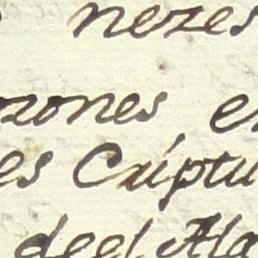 nezes
zones e
es Criptu
deel Ala